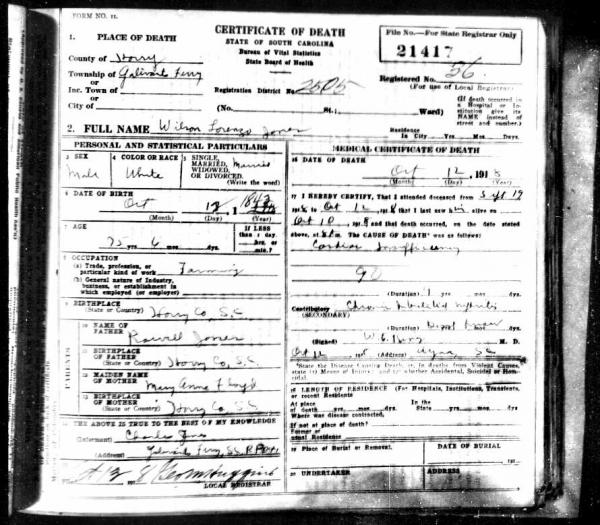 FORM NO. 11.
CERTIFICATE OF DEATH
STATE OF SOUTH CAROLINA
Bureau of Vital Statistics
State Board of Health
File No.—For State Registrar Only
21417
1. PLACE OF DEATH
County of Horry
Township of Galivants Ferry
or
Inc. Town of
or
City of
Registration District No. 2505
(No. St.; Ward)
Registered No. 56
(For use of Local Registrar)
(If death occurred in a Hospital or Institution give its NAME instead of street and number.)
2. FULL NAME Wilson Lorenzo Jones
Residence
In City Yrs. Mos. Days.
PERSONAL AND STATISTICAL PARTICULARS
3 SEX
Male
4 COLOR OR RACE
White
5 SINGLE, MARRIED, WIDOWED, OR DIVORCED.
(Write the word)
Married
6 DATE OF BIRTH
Oct 12, 1843
(Month) (Day) (Year)
7 AGE
75 yrs. mos. ds.
If LESS than 1 day, hrs. or min.?
8 OCCUPATION
(a) Trade, profession, or particular kind of work Farming
(b) General nature of Industry, business, or establishment in which employed (or employer)
9 BIRTHPLACE
(State or Country) Horry Co, S.C.
10 NAME OF FATHER
Jones
PARENTS
11 BIRTHPLACE OF FATHER
(State or Country) Horry Co, S.C.
12 MAIDEN NAME OF MOTHER
Mary Anne Floyd
13 BIRTHPLACE OF MOTHER
(State or Country) Horry Co S.C.
THE ABOVE IS TRUE TO THE BEST OF MY KNOWLEDGE
(Informant) Charles Jones
(Address) Galivants Ferry, S.C.
Geo M Huggins
LOCAL REGISTRAR
MEDICAL CERTIFICATE OF DEATH
16 DATE OF DEATH
Oct 12, 1918
(Month) (Day) (Year)
17 I HEREBY CERTIFY, That I attended deceased from Sept 19
1918, to Oct 12, 1918 that I last saw him alive on
Oct 10, 1918 and that death occurred, on the date stated
above, at M. The CAUSE OF DEATH* was as follows:
Cardiac Insufficiency
90
(Duration) yrs. mos. dys.
Contributory Chronic Nephritis
(SECONDARY)
(Duration) Dont know
(Signed) M. D.
Oct 12 191 (Address) Aynor, SC
*State the Disease Causing Death, or, in deaths from Violent Causes, state (1) Means of Injury; and (2) whether Accidental, Suicidal or Homicidal.
18 LENGTH OF RESIDENCE (For Hospitals, Institutions, Transients, or recent Residents
At place of death yrs. mos. dys. In the State yrs. mos. dys.
Where was disease contracted,
If not at place of death?
Former or usual Residence
19 Place of Burial or Removal.
DATE OF BURIAL
191
20 UNDERTAKER
ADDRESS